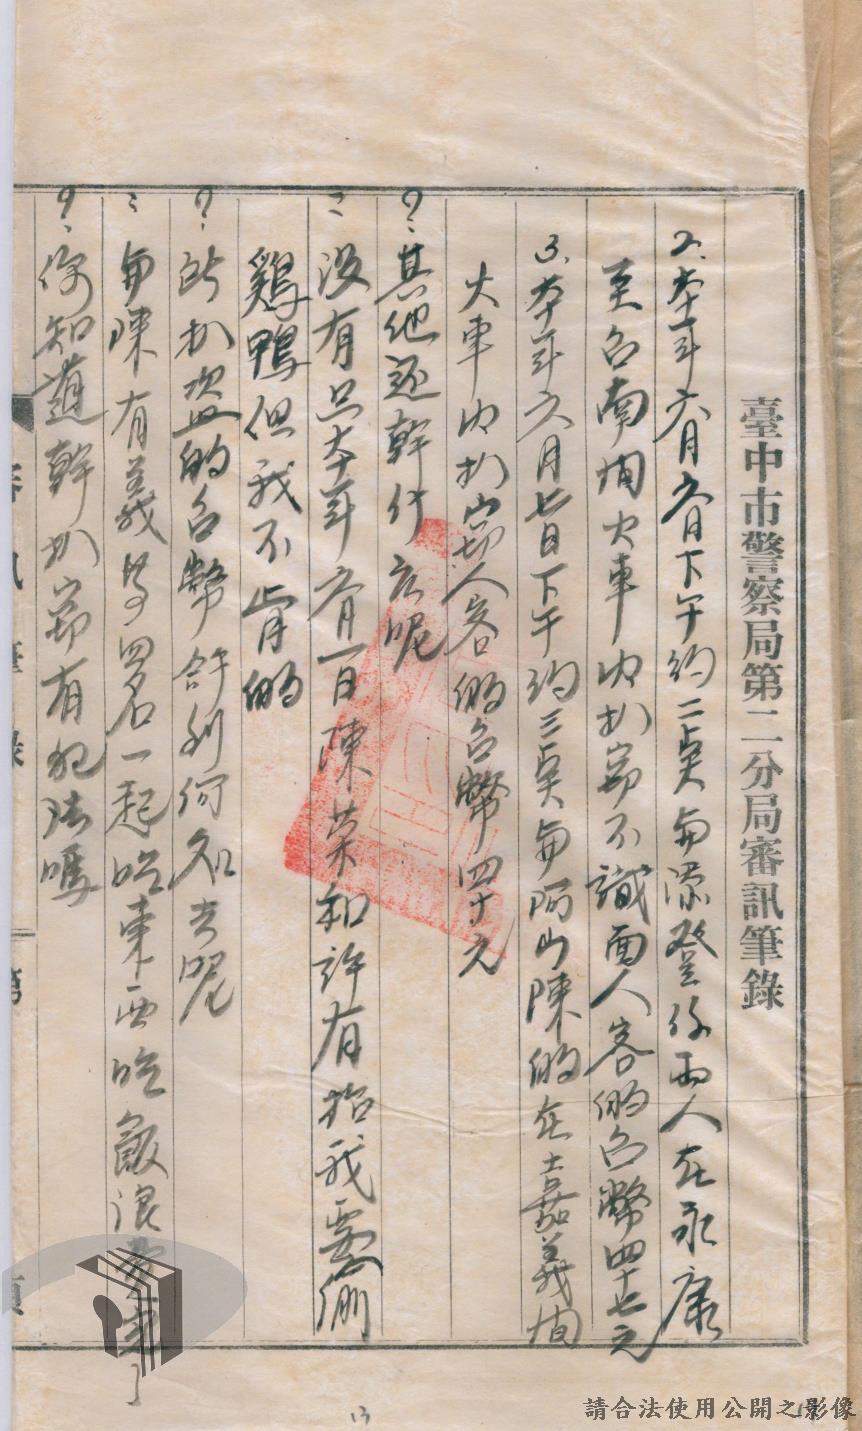 臺中市警察局第二分局審訊筆錄
2、本年六月六日下午約二點與添登係兩人在永康
至台南間火車內扒窃不識面人客的台幣四十七元
3、本年六月七日下午約三點與阿山陳的在嘉義間
火車內扒窃人客的台幣四十元
?：其他还幹什么呢
：没有只本年六月一日陳荣和許有招我要偷
鷄鴨但我不肯的
?：所扒盗的台幣作到何処去呢
：與陳有義等四名一起吃東西吃飯浪費完了
?：你知道幹扒窃有犯法嗎
審訊筆錄 第 頁
13
請合法使用公開之影像